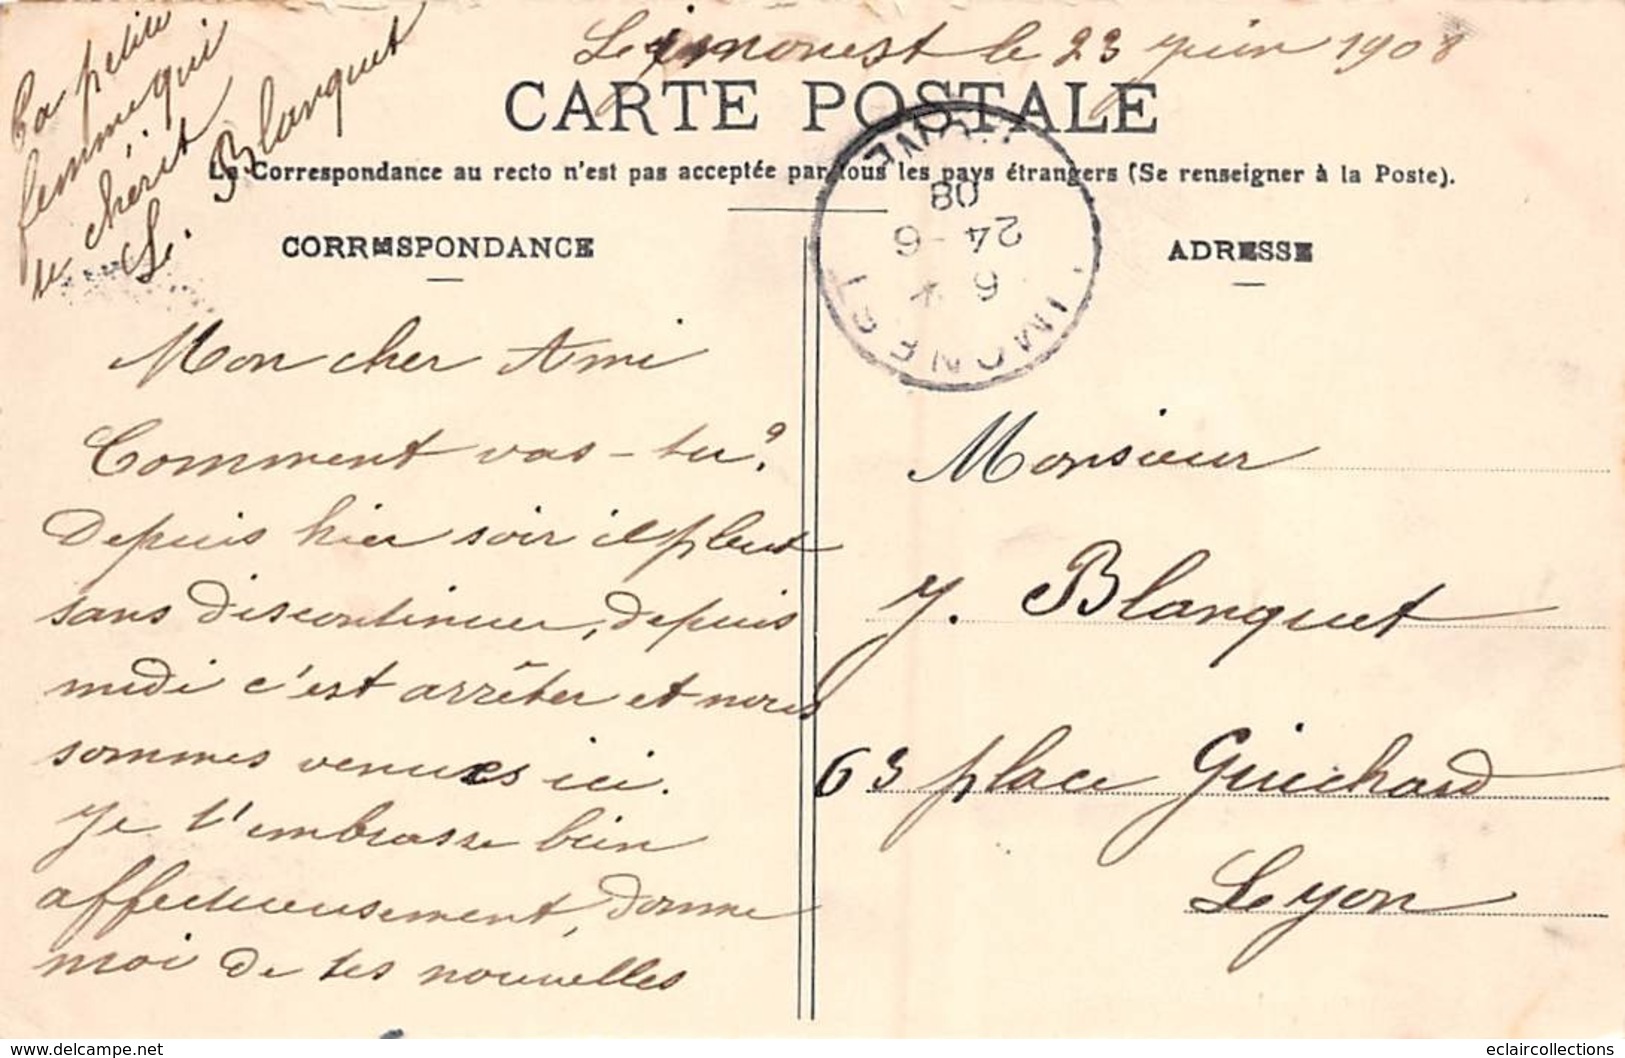 Limonest le 23 juin 1908
CARTE POSTALE
La Correspondance au recto n'est pas acceptée par tous les pays étrangers (Se renseigner à la Poste).
CORRESPONDANCE
ADRESSE
LIMONEST
RHONE
6
24-6
08
Mon cher Ami
Comment vas-tu?
Depuis hier soir il pleut
sans discontinuer, depuis
midi c'est arrêter et nous
sommes venues ici.
Je t'embrasse bien
affectueusement, donne
moi de tes nouvelles
Ta petite
femme qui
te chérit
L. Blanquet
Monsieur
J. Blanquet
63 place Guichard
Lyon
www.delcampe.net
eclaircollections